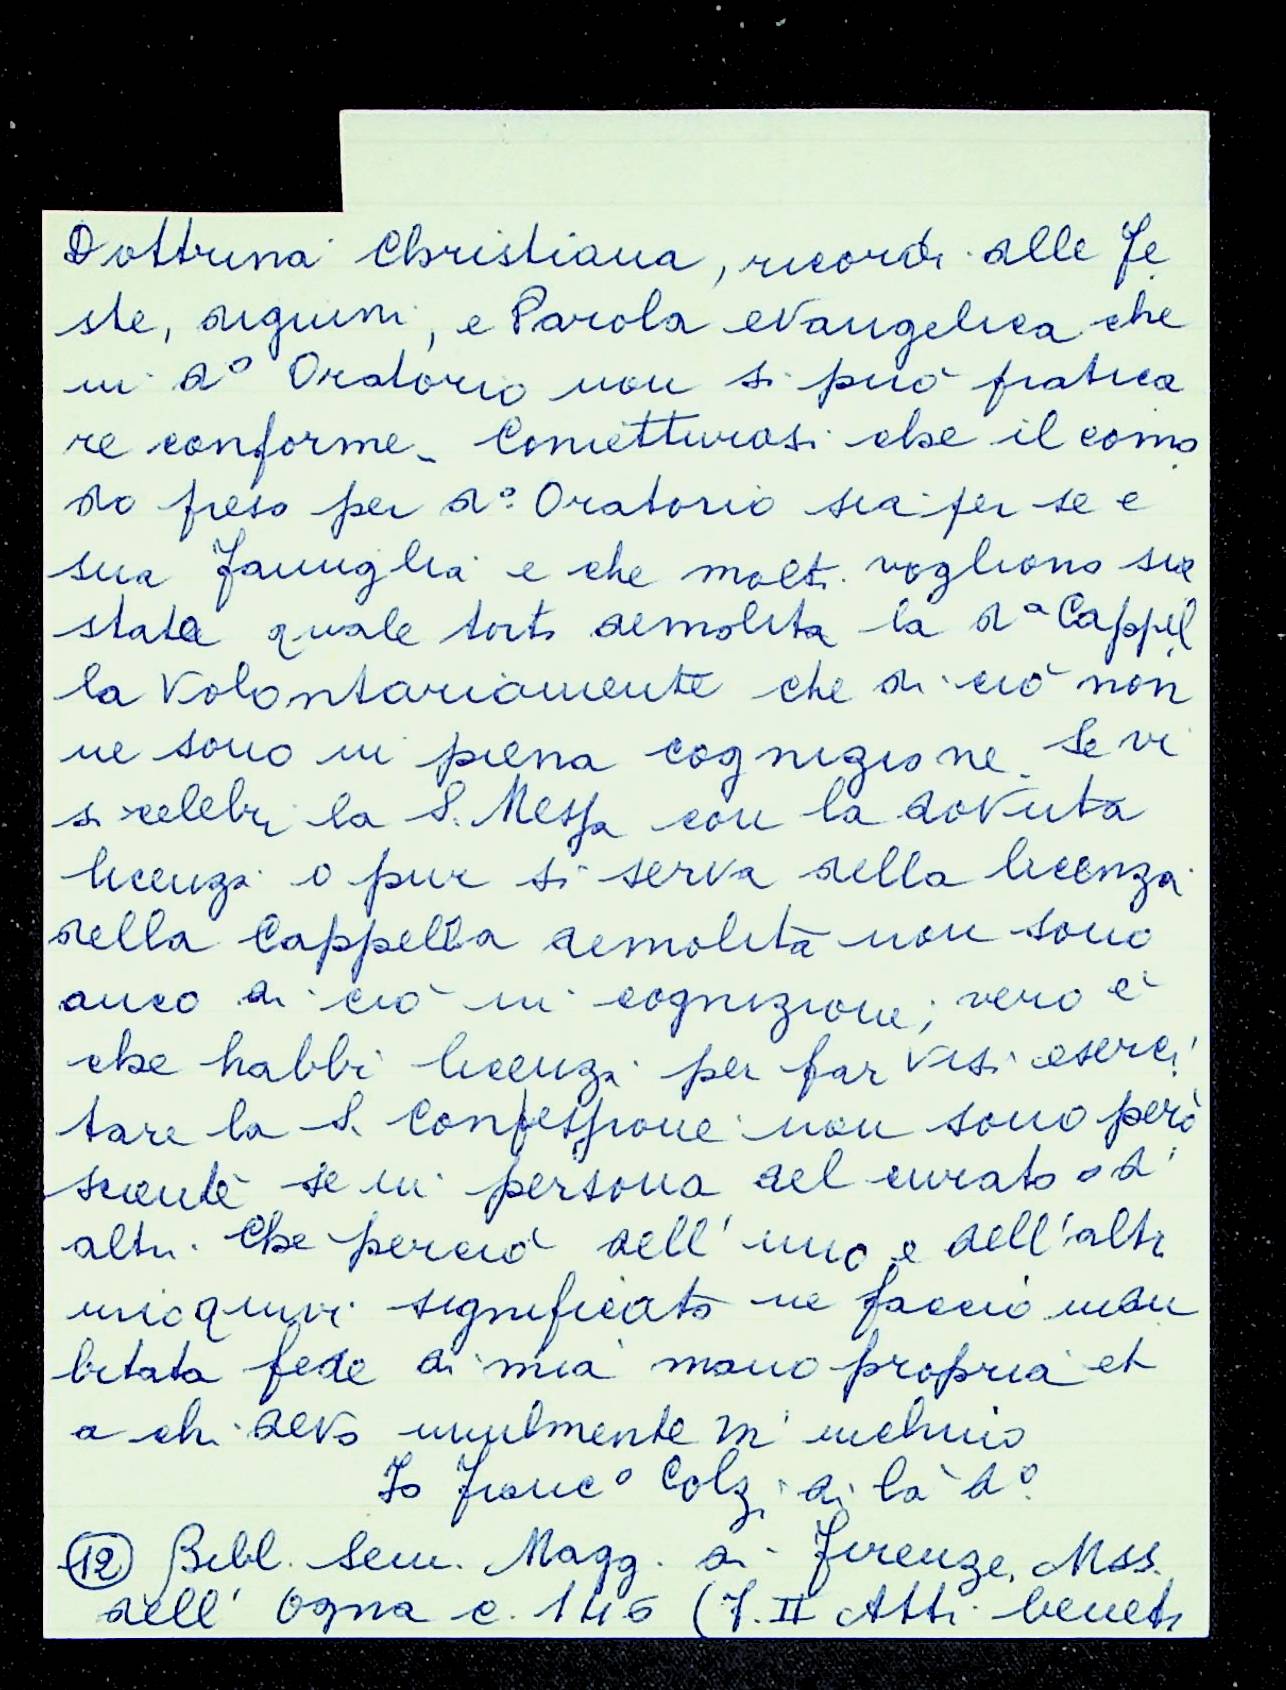 Dottrina Christiana, ricordi alle Fe
ste, digiuni, e Parola evangelica che
in d° Oratorio non si può pratica
re conforme. Conietturasi che il como
do preso per d°. Oratorio sia per se e
sua Famiglia e che molti vogliono sia
stata quale tosto demolita la d.ª Cappel
la volontariamente che di ciò non
ne sono in piena cognizione. Se vi
si celebri la S. Messa con la dovuta
licenza o pur si serva della licenza
della Cappella demolita non sono
anco di ciò in cognizione; vero è
che habbi licenza per far visi eserci
tare la S. Confessione non sono però
sciente se in persona del curato o d'
altri. Che perciò dell' uno e dell' altro
quivi significato ne faccio indu
bitata fede di mia mano propria et
a chi devo umilmente m' inchino
Io Franc° Colzi di là d°.
(12) Bibl. Sem. Magg. di Firenze. Mss.
dell' Ogna c. 146 (T. II Atti beneti